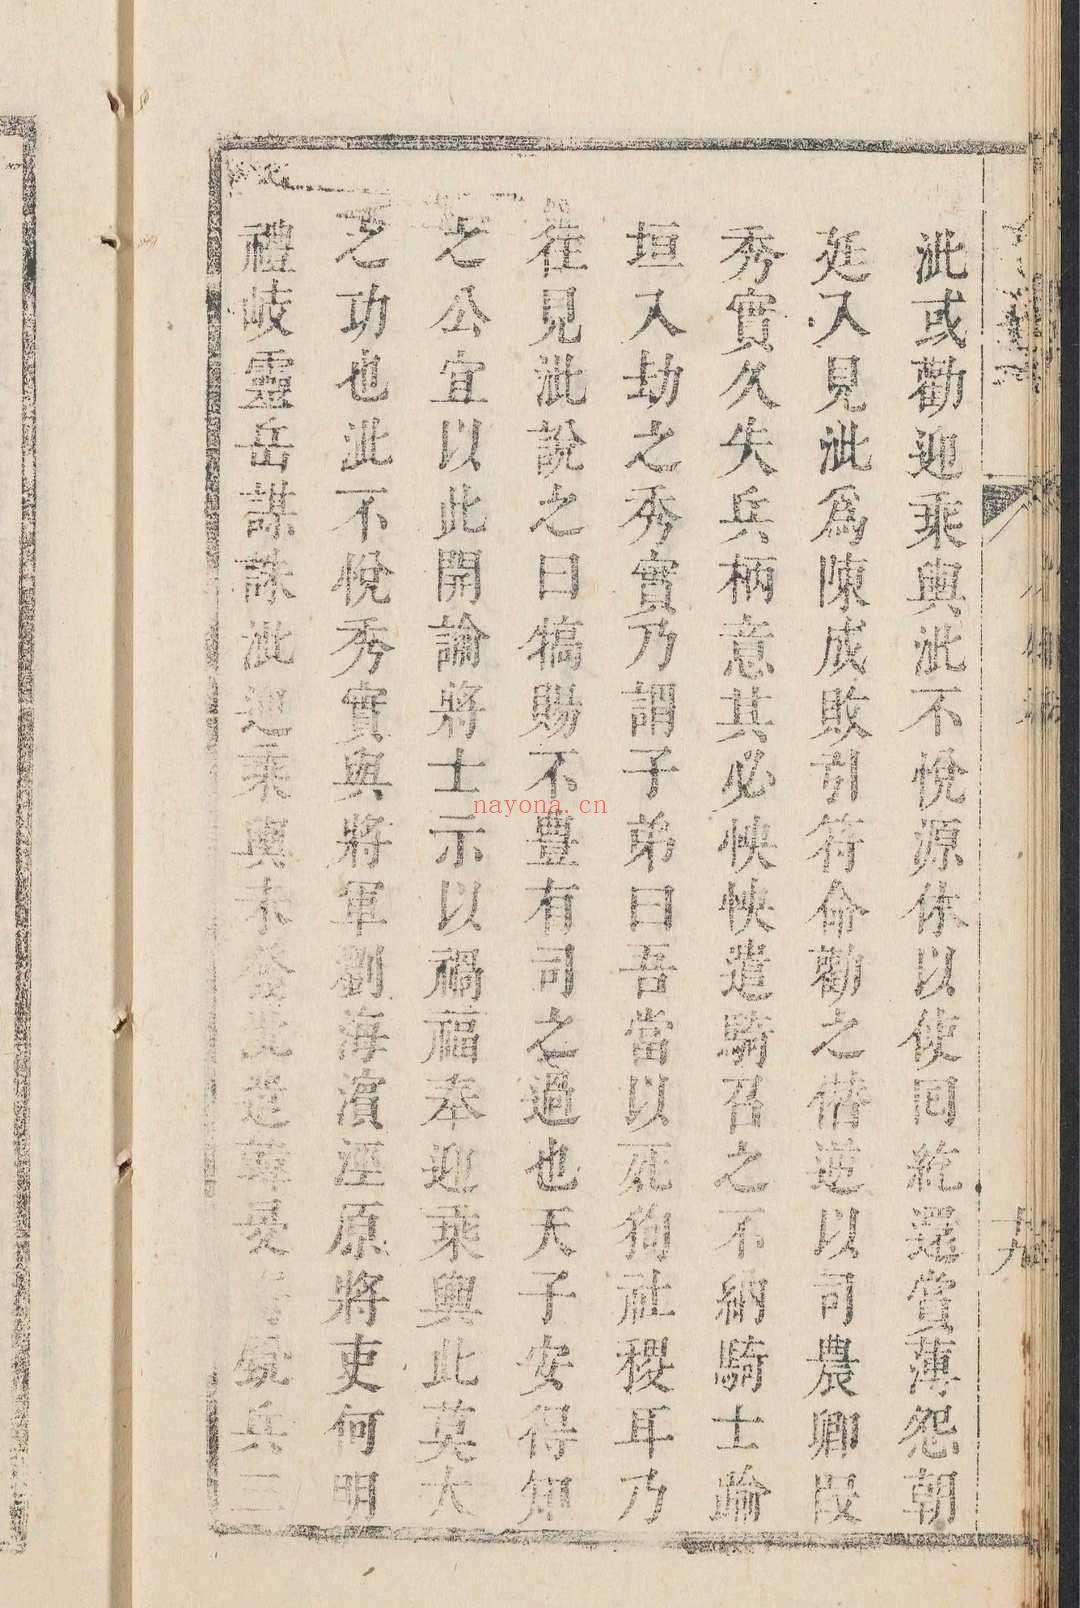 泚或勸迎乘輿泚不悅源休以使囘紇還賞薄怨朝
廷入見泚爲陳成敗引符命勸之僭逆以司農卿段
秀實久失兵柄意其必怏怏遣騎召之不納騎士踰
垣入劫之秀實乃謂子弟曰吾當以死狥社稷耳乃
往見泚說之曰犒賜不豐有司之過也天子安得知
之公宜以此開諭將士示以禍福奉迎乘輿此莫大
之功也泚不悅秀實與將軍劉海濵涇原將吏何明
禮岐靈岳謀誅泚迎乘輿未發泚遣韓旻 銳兵三
九
nayona.cn